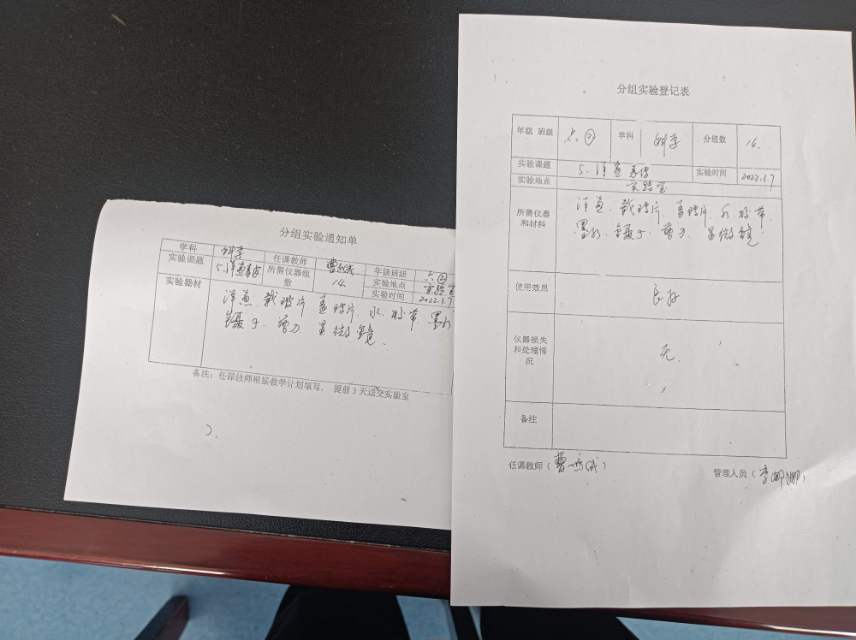 分组实验通知单
学科 科学 任课教师 年级班级 六②
实验课题 5.洋葱表皮 所需仪器组数 14. 实验地点 实验室
实验时间 2022.3.7
实验器材 洋葱 载玻片 盖玻片. 水 胶带 墨水
镊子. 剪刀 显微镜.
备注:任课教师根据教学计划填写, 提前3天送交实验室
分组实验登记表
年级 班级 六② 学科 科学 分组数 14.
实验课题 5. 洋葱表皮 实验时间 2022.3.7
实验地点 实验室
所需仪器和材料 洋葱. 载玻片. 盖玻片. 水 胶带.
墨水. 镊子. 剪刀. 显微镜
使用效果 良好
仪器损失和处理情况 无.
备注
任课教师( ) 管理人员( )